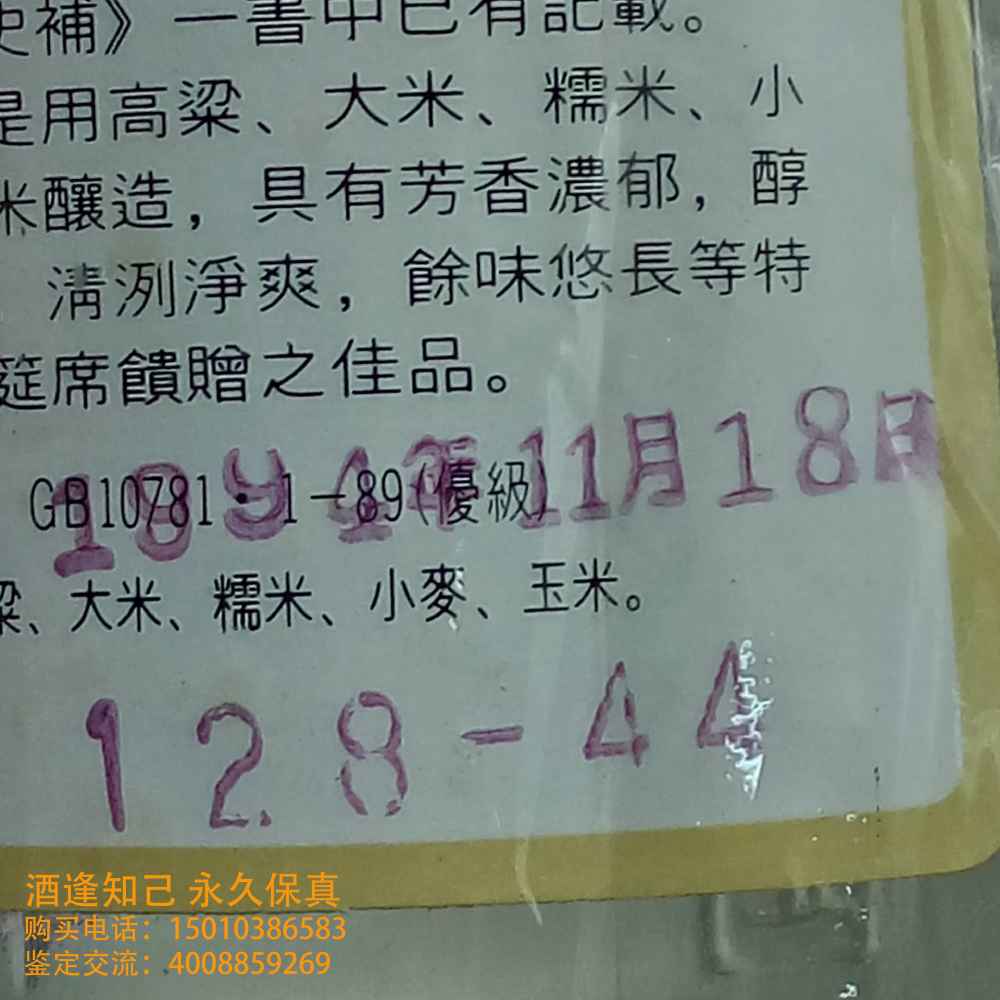 史補》一書中已有記載。
是用高粱、大米、糯米、小
米釀造，具有芳香濃郁，醇
清冽淨爽，餘味悠長等特
筵席饋贈之佳品。
1994年11月18日
GB10781·1-89(優級)
粱、大米、糯米、小麥、玉米。
128-44
酒逢知己 永久保真
购买电话：15010386583
鉴定交流：4008859269